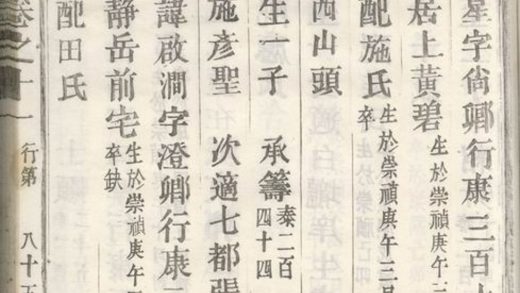 星字尙卿行康三百
居上黃碧 生於崇禎庚午
配施氏 生於崇禎庚午三月 卒
西山頭
生一子 承籌 泰二百四十四
施彥聖 次適七都張
諱啟澗字澄卿行康
靜岳前宅 生於崇禎庚午 卒缺
配田氏
卷之十一 行第 八十五